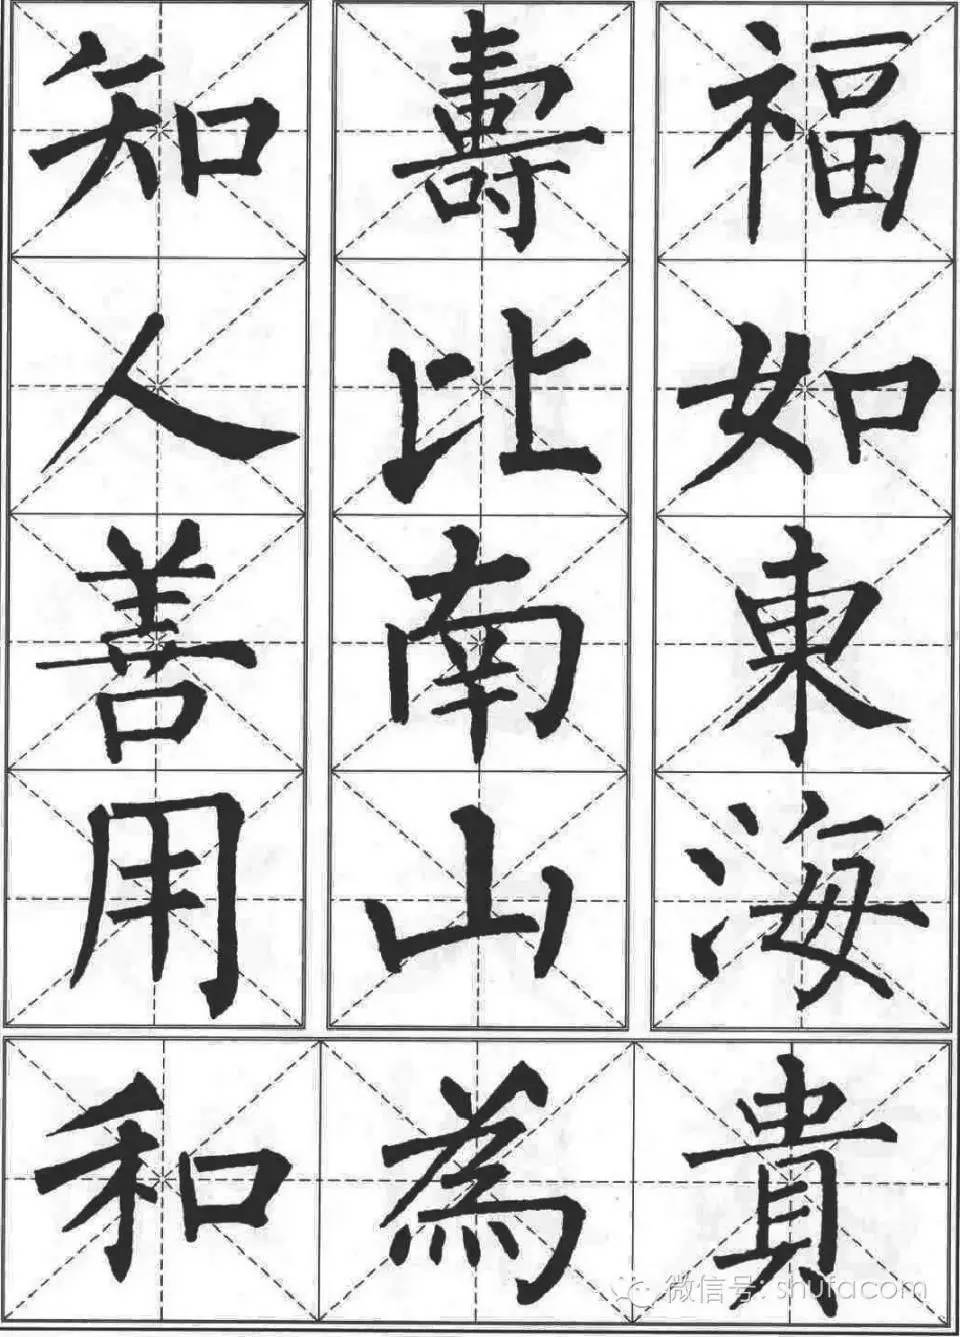 福如東海
壽比南山
知人善用
和為貴
微信号: shufacom